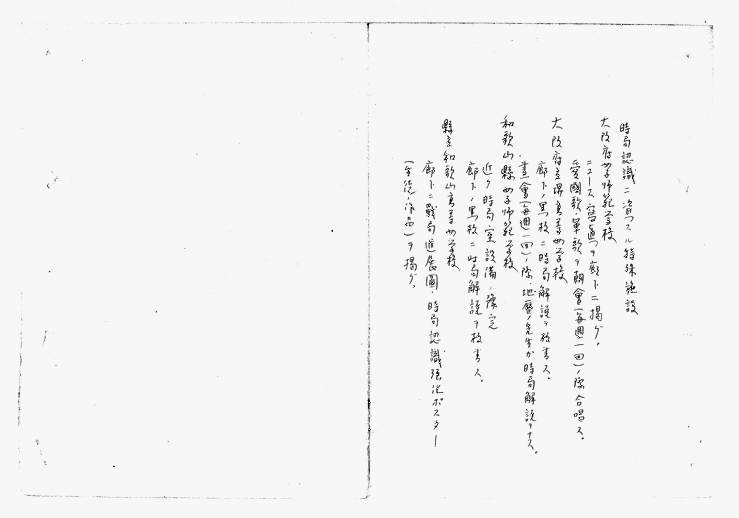 時局認識ニ資スル特殊施設
大阪府女子師範学校
ニュース寫眞ヲ廊下ニ揭グ。
愛國歌・軍歌ヲ朝會(毎週一回)ノ際合唱ス。
大阪府立堺高等女学校
廊下ノ黒板ニ時局解説ヲ板書ス。
晝會(毎週一回)ノ際、地歴ノ先生ガ時局解説ヲナス。
和歌山縣女子師範学校
近ク時局室設備ノ豫定
廊下ノ黒板ニ時局解説ヲ板書ス。
縣立和歌山高等女学校
廊下ニ戰局進展圖・時局認識強化ポスター
(生徒ノ作品)ヲ揭グ。